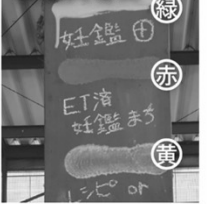 緑
妊鑑 ⊕
赤
ET済
妊鑑まち
黄
レシピ or